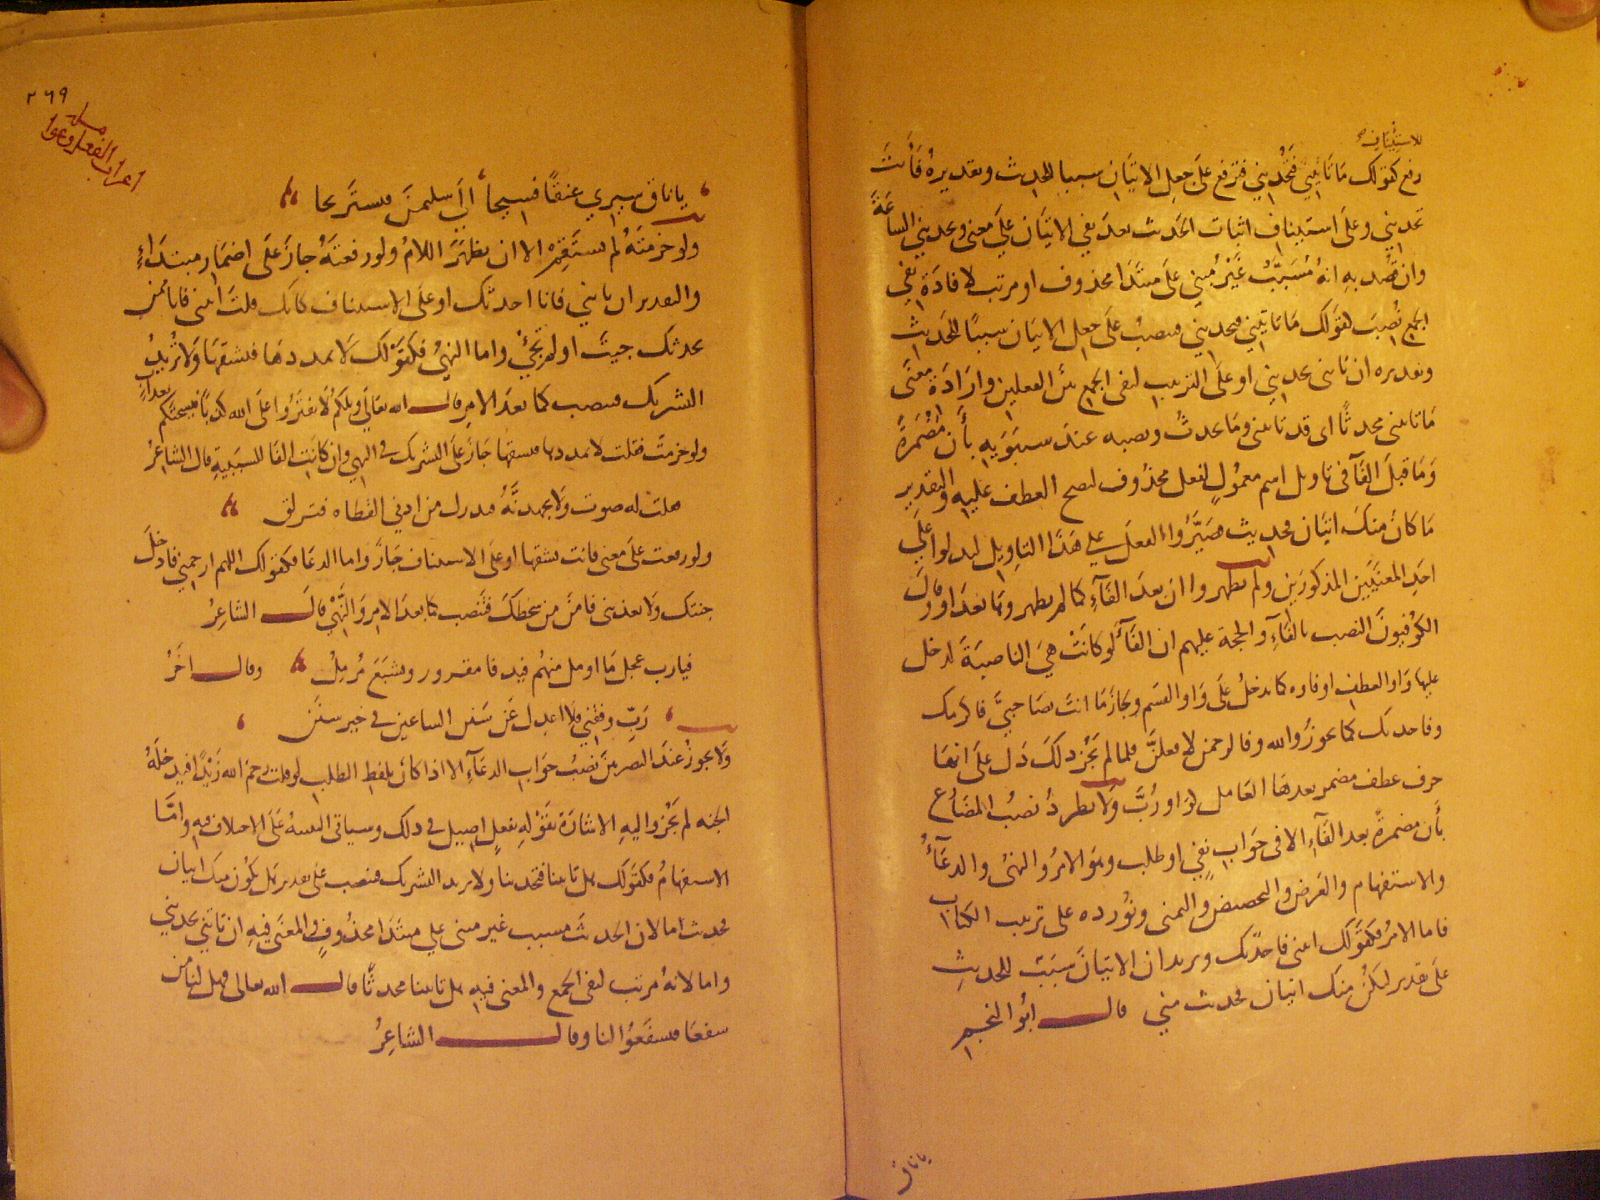 للاستيناف
رفع كقولك ما تأتيني فتحدثني فترفع على جعل الاتيان سببا للحديث وتقديره فأنت
تحدثني وعلى استيناف اثبات الحديث بعد نفي الاتيان على معنى وتحدثني الساعة
وان قصد به انه مسبب غير مبني على مبتدا محذوف او مرتب لافادة نفي
الجمع نصب كقولك ما تاتيني فتحدثني فنصب على جعل الاتيان سببا للحديث
وتقديره ان تاتني تحدثني او على الترتيب لنفي الجمع بين الفعلين وارادة معنى
ما تاتيني محدثا اي قد تاتيني وما تحدث ونصبه عند سيبويه بأن مضمرة
وما قبل الفآ في تاويل اسم معمول لفعل محذوف ليصح العطف عليه والتقدير
ما كان منك اتيان فحديث صيروا الفعل على هذا التاويل ليدلوا على
احد المعنيين المذكورين ولم يظهروا ان بعد الفآء كما لم يظهروها بعد او وقال
الكوفيون النصب بالفآء والحجة عليهم ان الفآ لو كانت هي الناصبة لدخل
عليها واو العطف او فاوه كما تدخل على واو القسم وجاز ما انت صاحبي فاكرمك
وفاحدثك كما يجوز والله وفالرحمن لافعلن فلما لم يجز ذلك دل على انها
حرف عطف مضمر بعدها العامل كواو رب ولا يطرد نصب المضارع
بأن مضمرة بعد الفآء الا في جواب نفي او طلب وهو الامر والنهي والدعآء
والاستفهام والعرض والتحضيض والتمني ونورده على ترتيب الكتاب
فاما الامر فكقولك ائتني فاحدثك وتريد ان الاتيان سبب للحديث
على تقدير ليكن منك اتيان فحديث مني قال ابو النجم
يا ناق
٢٦٩
اعراب الفعل وعوامله
يا ناق سيري عنقا فسيحا الى سليمن فنستريحا
ولو جزمته لم يستقم الا ان يظهر اللام ولو رفعته جاز على اضمار مبتداء
والتقدير ان تاتني فانا احدثك او على الاستيناف كانك قلت ائتني فانا ممن
يحدثك جيت او لم تجئ واما النهي فكقولك لا تمددها فتشقها ولا تريد
التشريك فتنصب كما بعد الامر قال الله تعالى ويلكم لا تفتروا على الله كذبا فيسحتكم بعذاب
ولو جزمت فقلت لا تمددها فتشقها جاز على التشريك في النهي وان كانت الفا للسببية قال الشاعر
فقلت له صوب ولا تجهدنه فيدرك من ادنى القطاه فتزلق
ولو رفعت على معنى فانت تشقها او على الاستيناف جاز واما الدعا فكقولك اللهم ارحمني فادخل
جنتك ولا تعذبني فامن من سخطك فتنصب كما بعد الامر والنهي قال الشاعر
فيارب عجل ما اومل منهم فيدفا مقرور ويشبع مرمل وقال اخر
رب وفقني فلا اعدل عن سنن الساعين في خير سنن
ولا يجوز عند البصريين نصب جواب الدعآء الا اذا كان بلفظ الطلب لو قلت رحم الله زيدا فيدخله
الجنه لم يجز واليه الاشارة بقوله بفعل اصيل في ذلك وسياتي التنبيه على الاختلاف فيه واما
الاستفهام فكقولك هل تاتينا فتحدثنا ولا تريد التشريك فتنصب على تقدير هل يكون منك اتيان
فحديث اما لان الحديث مسبب غير مبني على مبتدا محذوف والمعنى فيه ان تاتني تحدثني
واما لانه مرتب لنفي الجمع والمعنى فيه هل تاتينا محدثا قال الله تعالى فهل لنا من
شفعا فيشفعوا لنا وقال الشاعر